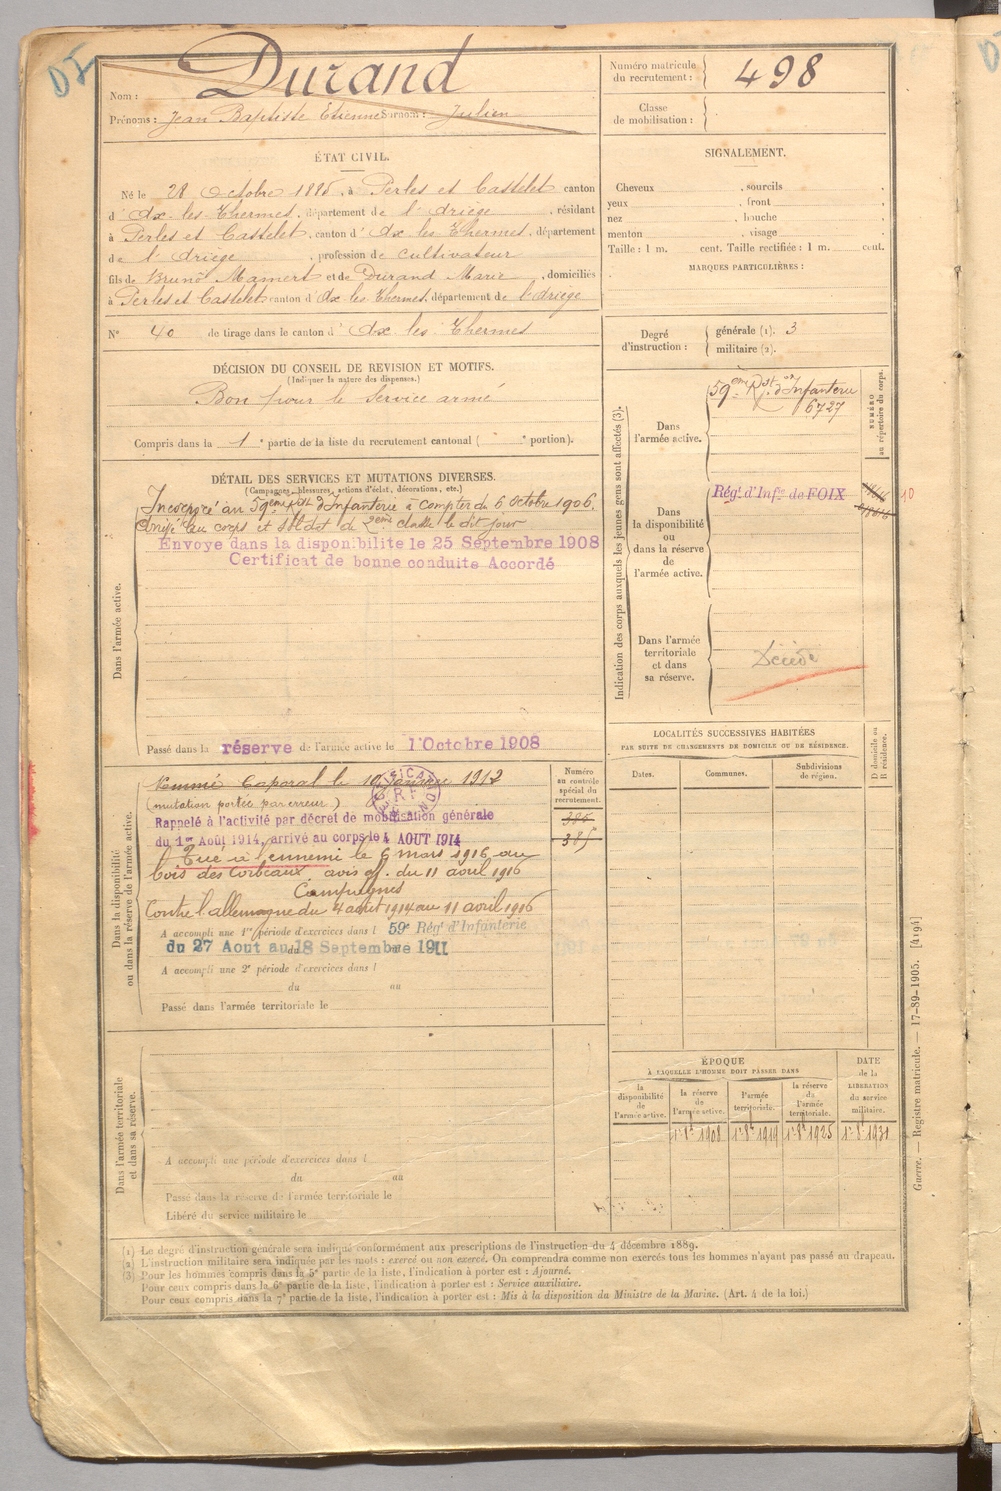 DI
Nom : Durand
Prénoms : Jean Baptiste Etienne Surnom : Julien
Numéro matricule du recrutement : 498
Classe de mobilisation :
ÉTAT CIVIL.
Né le 28 Octobre 1885, à Perles et Castelet canton
d' Ax les Thermes, département de l' Ariège, résidant
à Perles et Castelet, canton d' Ax les Thermes, département
de l' Ariège, profession de cultivateur
fils de Bruno Mamert et de Durand Marie, domiciliés
à Perles et Castelet canton d' Ax les Thermes, département de l'Ariège
N° 40 de tirage dans le canton d' Ax les Thermes
DÉCISION DU CONSEIL DE REVISION ET MOTIFS.
(Indiquer la nature des dispenses.)
Bon pour le service armé
Compris dans la 1e partie de la liste du recrutement cantonal ( e portion).
DÉTAIL DES SERVICES ET MUTATIONS DIVERSES.
(Campagnes, blessures, actions d'éclat, décorations, etc.)
Dans l'armée active.
Incorporé au 59ème Rgt d'Infanterie à compter du 6 octobre 1906.
Arrivé au corps et soldat de 2ème classe le dit jour
Envoye dans la disponibilite le 25 Septembre 1908
Certificat de bonne conduite Accordé
Passé dans la réserve de l'armée active le 1° Octobre 1908
Dans la disponibilité ou dans la réserve de l'armée active.
Nommé Caporal le 10 Janvier 1912
(mutation portée par erreur)
Rappelé à l'activité par décret de mobilisation générale
du 1er Août 1914, arrivé au corps le 4 AOUT 1914
Tué à l'ennemi le 6 mars 1916 au
bois des Corbeaux avis du 11 avril 1916
Campagnes
Contre l'allemagne du 4 août 1914 au 11 avril 1916
A accompli une 1re période d'exercices dans l 59e Régt d'Infanterie
du 27 Aout au 18 Septembre 1911
A accompli une 2e période d'exercices dans l
du au
Passé dans l'armée territoriale le
Numéro au contrôle spécial du recrutement.
385
Dans l'armée territoriale et dans sa réserve.
A accompli une période d'exercices dans l
du au
Passé dans la réserve de l'armée territoriale le
Libéré du service militaire le
SIGNALEMENT.
Cheveux , sourcils
yeux , front
nez , bouche
menton , visage
Taille : 1 m. cent. Taille rectifiée : 1 m. cent.
MARQUES PARTICULIÈRES :
Degré d'instruction : générale (1). 3
militaire (2).
Indication des corps auxquels les jeunes gens sont affectés (3).
NUMÉRO au répertoire du corps.
Dans l'armée active.
59ème Rgt d'Infanterie
6727
Dans la disponibilité ou dans la réserve de l'armée active.
Régt d'Infie de FOIX
10
Dans l'armée territoriale et dans sa réserve.
Décédé
LOCALITÉS SUCCESSIVES HABITÉES
PAR SUITE DE CHANGEMENTS DE DOMICILE OU DE RÉSIDENCE.
Dates. Communes. Subdivisions de région.
D domicile ou R résidence.
ÉPOQUE
À LAQUELLE L'HOMME DOIT PASSER DANS
DATE de la LIBÉRATION du service militaire.
la disponibilité de l'armée active. la réserve de l'armée active. l'armée territoriale. la réserve de l'armée territoriale.
1er 8bre 1908 1er 8bre 1919 1er 8bre 1925 1er 8bre 1931
(1) Le degré d'instruction générale sera indiqué conformément aux prescriptions de l'instruction du 4 décembre 1889.
(2) L'instruction militaire sera indiquée par les mots : exercé ou non exercé. On comprendra comme non exercés tous les hommes n'ayant pas passé au drapeau.
(3) Pour les hommes compris dans la 5e partie de la liste, l'indication à porter est : Ajourné.
Pour ceux compris dans la 6e partie de la liste, l'indication à porter est : Service auxiliaire.
Pour ceux compris dans la 7e partie de la liste, l'indication à porter est : Mis à la disposition du Ministre de la Marine. (Art. 4 de la loi.)
Guerre. — Registre matricule. — 17-89-1905. [4194]